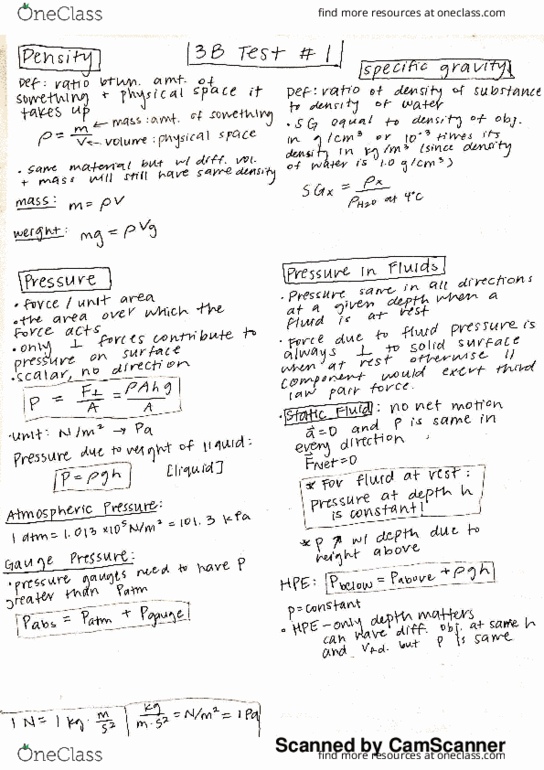 OneClass
find more resources at oneclass.com
3B Test #1
Density
Def: ratio btwn. amt. of
something + physical space it
takes up
ρ = m/V
← mass: amt. of something
← volume: physical space
• same material but w/ diff. vol.
+ mass will still have same density
mass: m = ρV
weight: mg = ρVg
specific gravity
Def: ratio of density of substance
to density of water
• SG equal to density of obj.
in g/cm³ or 10⁻³ times its
density in kg/m³ (since density
of water is 1.0 g/cm³)
SGx = ρx / ρH2O at 4°C
Pressure
• force / unit area
• the area over which the
force acts
• only ⊥ forces contribute to
pressure on surface
• scalar, no direction
P = F⊥/A = ρAhg/A
• unit: N/m² → Pa
Pressure due to weight of liquid:
P = ρgh [liquid]
Atmospheric Pressure:
1 atm = 1.013 x 10⁵ N/m² = 101.3 kPa
Gauge Pressure:
• pressure gauges need to have P
greater than Patm
Pabs = Patm + Pgauge
1 N = 1 kg · m/s²
kg/m·s² = N/m² = 1 Pa
Pressure in Fluids
• Pressure same in all directions
at a given depth when a
fluid is at rest
• Force due to fluid pressure is
always ⊥ to solid surface
when at rest otherwise ||
component would exert third
law pair force.
• Static Fluid: no net motion
a⃗=0 and P is same in
every direction
F⃗Net=0
* For fluid at rest:
pressure at depth h
is constant!
* P ↗ w/ depth due to
height above
HPE: Pbelow = Pabove + ρgh
ρ = constant
• HPE - only depth matters
can have diff. obj. at same h
and but P is same
Scanned by CamScanner
OneClass
find more resources at oneclass.com